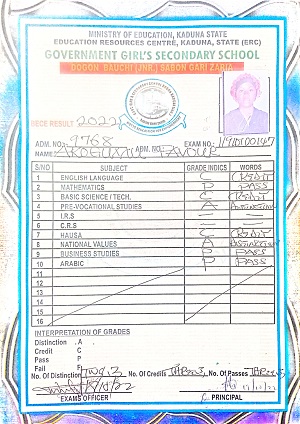 MINISTRY OF EDUCATION, KADUNA STATE
EDUCATION RESOURCES CENTRE, KADUNA, STATE (ERC)
GOVERNMENT GIRL'S SECONDARY SCHOOL
DOGON BAUCHI (JNR) SABON GARI ZARIA
BECE RESULT 2022
ADM. NO. 9768 EXAM NO:
NAME ADM. NO.
S/NO SUBJECT GRADE INDICS WORDS
1 ENGLISH LANGUAGE C CREDIT
2 MATHEMATICS P PASS
3 BASIC SCIENCE / TECH. C CREDIT
4 PRE-VOCATIONAL STUDIES A DISTINCTION
5 I.R.S — —
6 C.R.S — —
7 HAUSA C CREDIT
8 NATIONAL VALUES A DISTINCTION
9 BUSINESS STUDIES P PASS
10 ARABIC P PASS
11
12
13
14
15
16
INTERPRETATION OF GRADES
Distinction . A
Credit C
Pass P
Fail F
No. Of Distinction Two, 2 No. of Credits Three, 3 No. of Passes Three, 3
EXAMS OFFICER PRINCIPAL